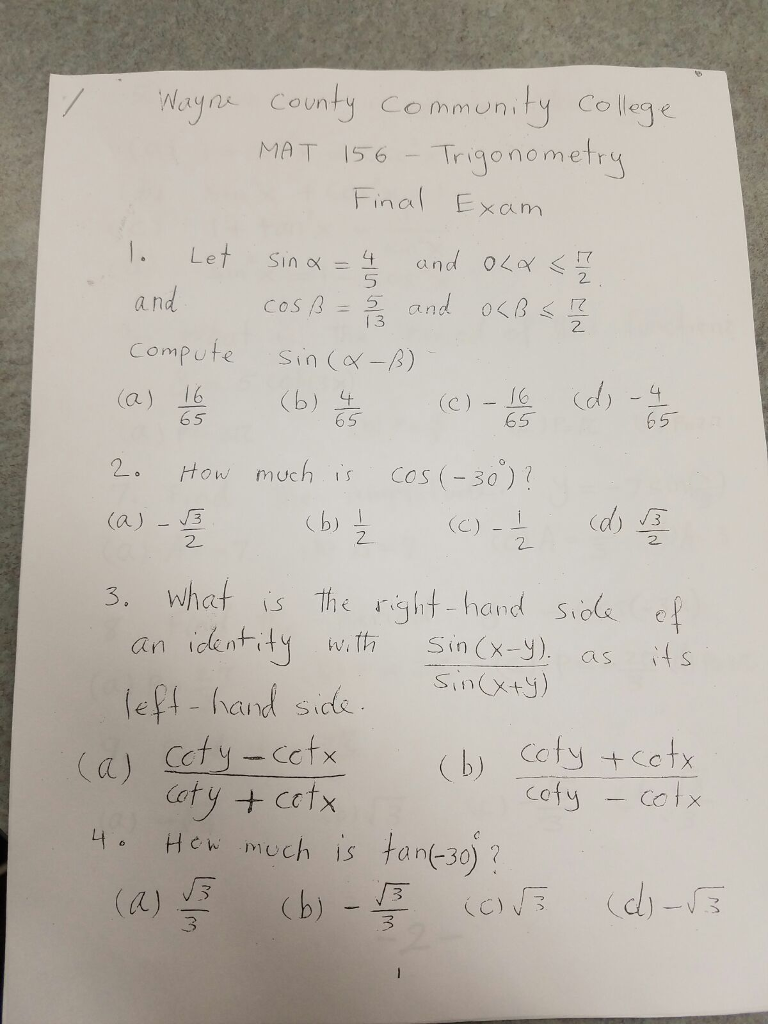 Wayne County Community College
MAT 156 - Trigonometry
Final Exam
1. Let sin α = 4/5 and 0<α ≤ π/2
and cos β = 5/13 and 0<β ≤ π/2
compute sin(α-β)
(a) 16/65 (b) 4/65 (c) - 16/65 (d) - 4/65
2. How much is cos(-30°)?
(a) - √3/2 (b) 1/2 (c) - 1/2 (d) √3/2
3. What is the right-hand side of
an identity with sin(x-y)/sin(x+y) as its
left-hand side.
(a) (coty - cotx)/(coty + cotx) (b) (coty + cotx)/(coty - cotx)
4. How much is tan(-30)°?
(a) √3/3 (b) - √3/3 (c) √3 (d) -√3
1